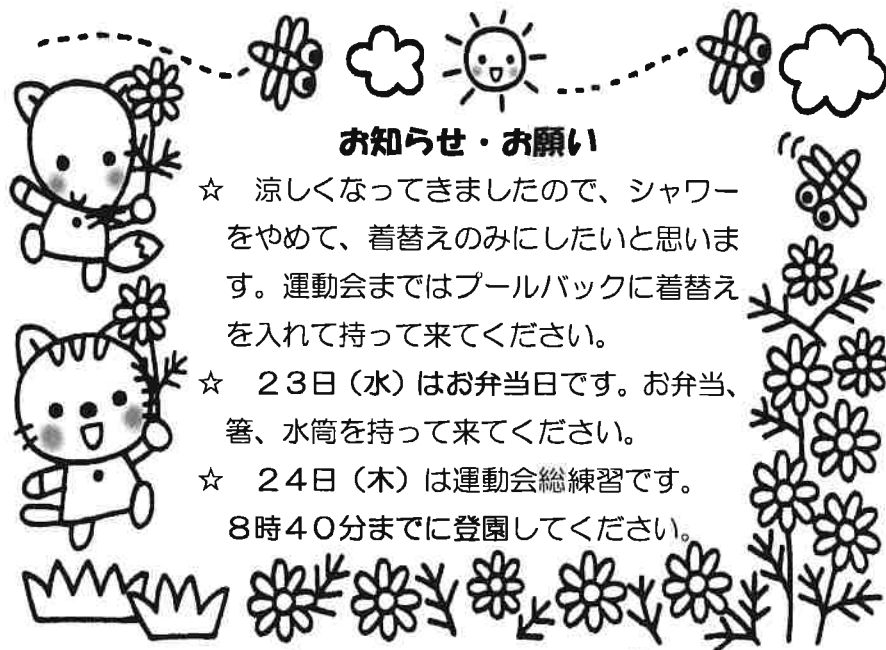 お知らせ・お願い
☆　涼しくなってきましたので、シャワー
をやめて、着替えのみにしたいと思いま
す。運動会まではプールバックに着替え
を入れて持って来てください。
☆　２３日（水）はお弁当日です。お弁当、
箸、水筒を持って来てください。
☆　２４日（木）は運動会総練習です。
８時４０分までに登園してください。